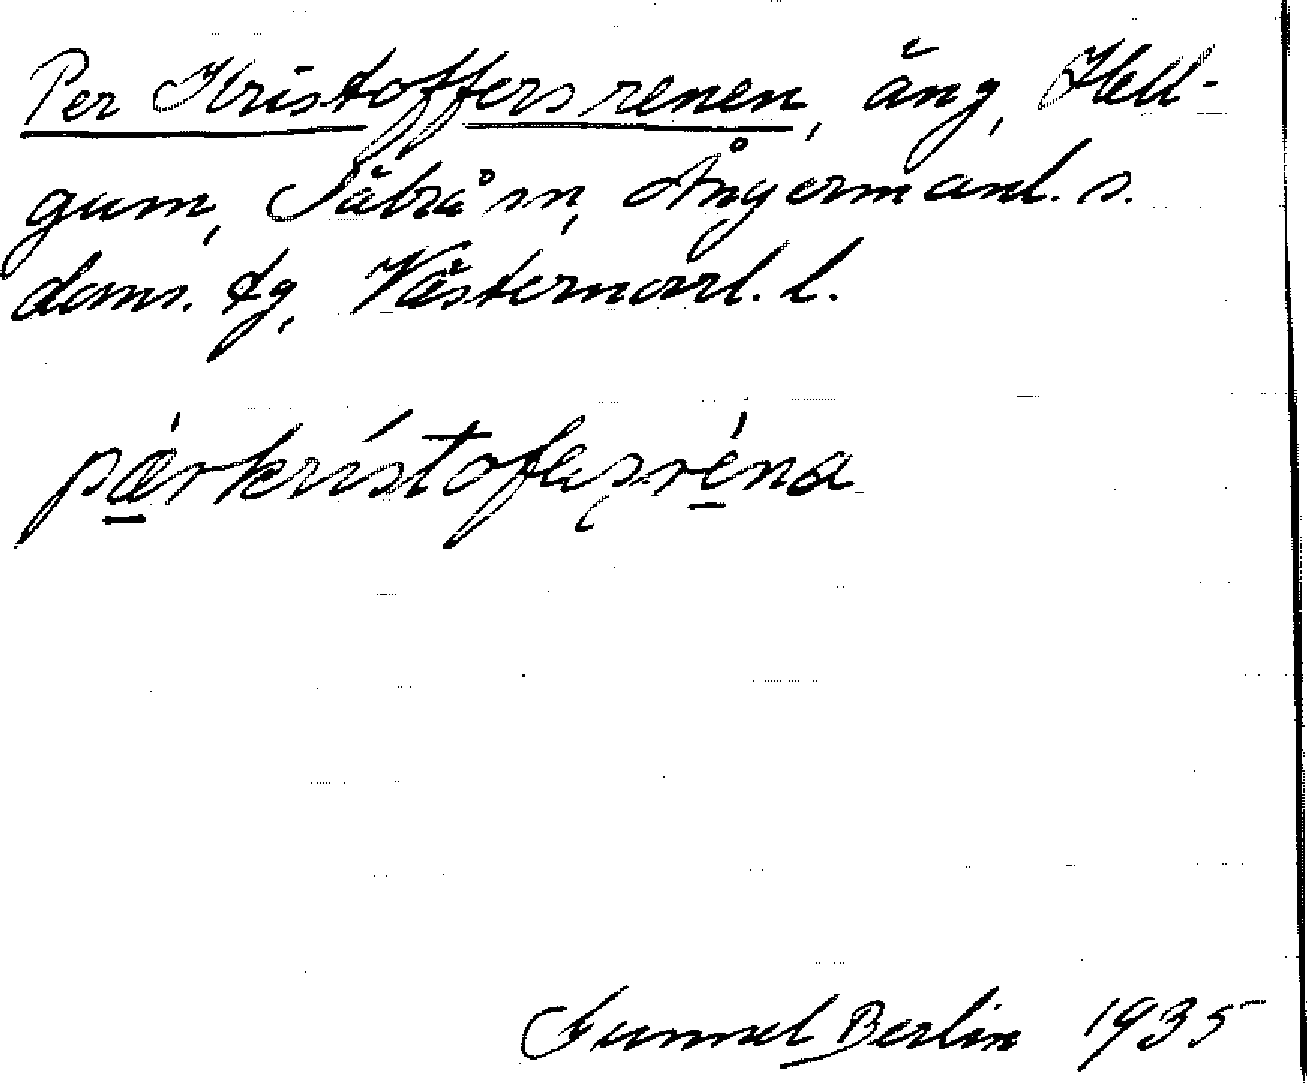 Per Kristoffersrenen, äng, Hell-
gum, Säbrå sn, Ångermanl. s.
doms. tg, Västernorrl. l.
pèrkrístofasréna
Gunnel Berlin 1935